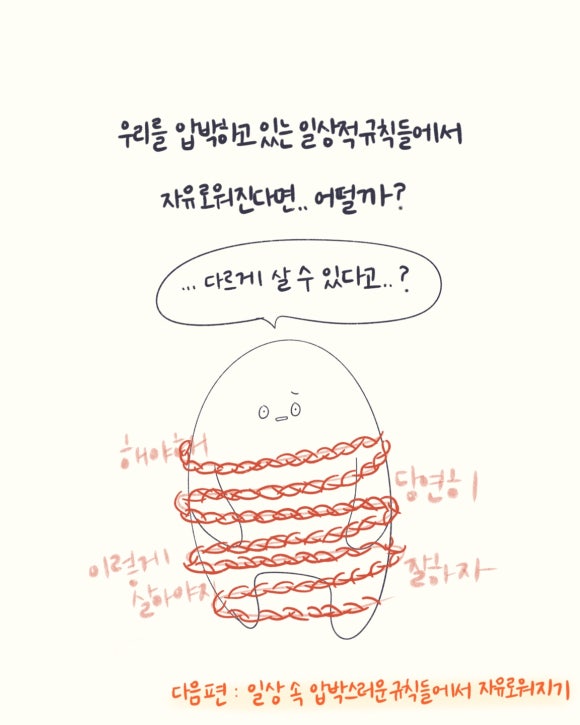 우리를 압박하고 있는 일상적 규칙들에서
자유로워진다면.. 어떨까?
... 다르게 살 수 있다고..?
해야해
당연히
이렇게
살아야지
잘하자
다음편 : 일상 속 압박스러운 규칙들에서 자유로워지기